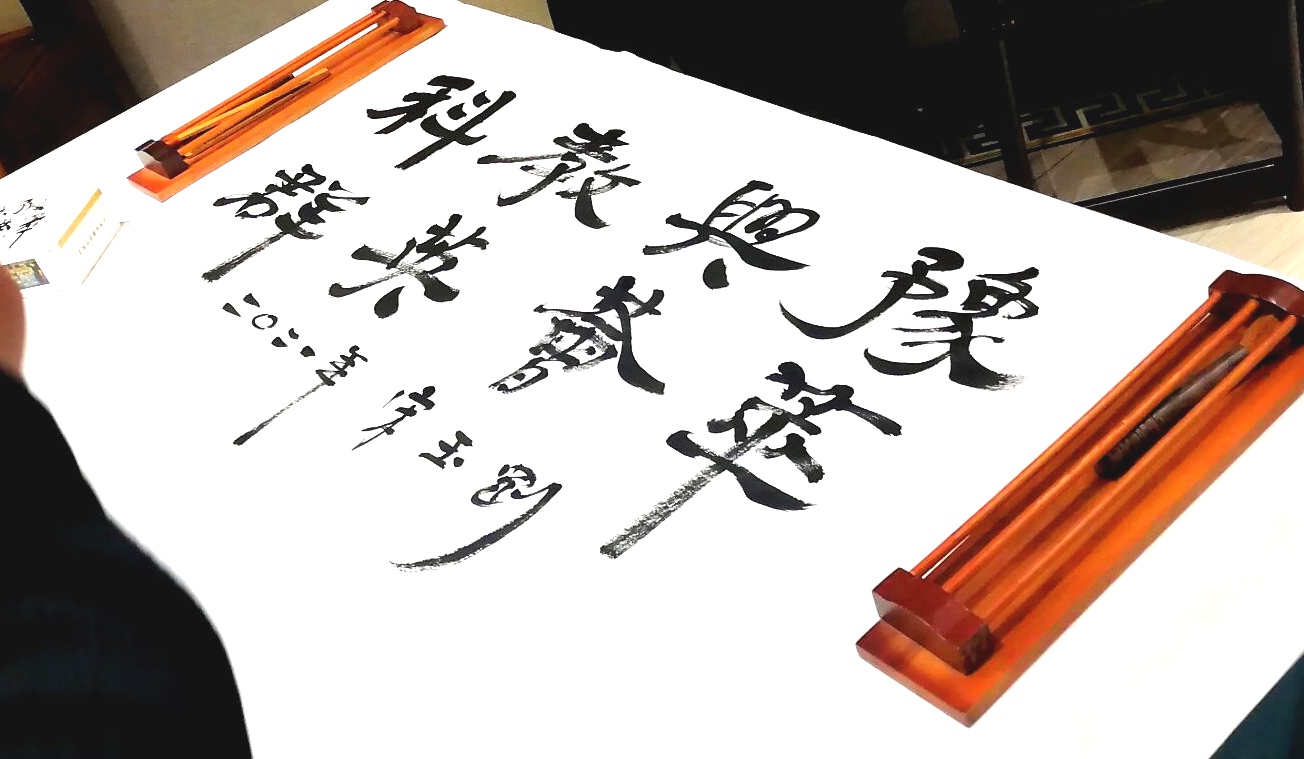 科教興豫
群英薈萃
二〇二二年 宋玉剛